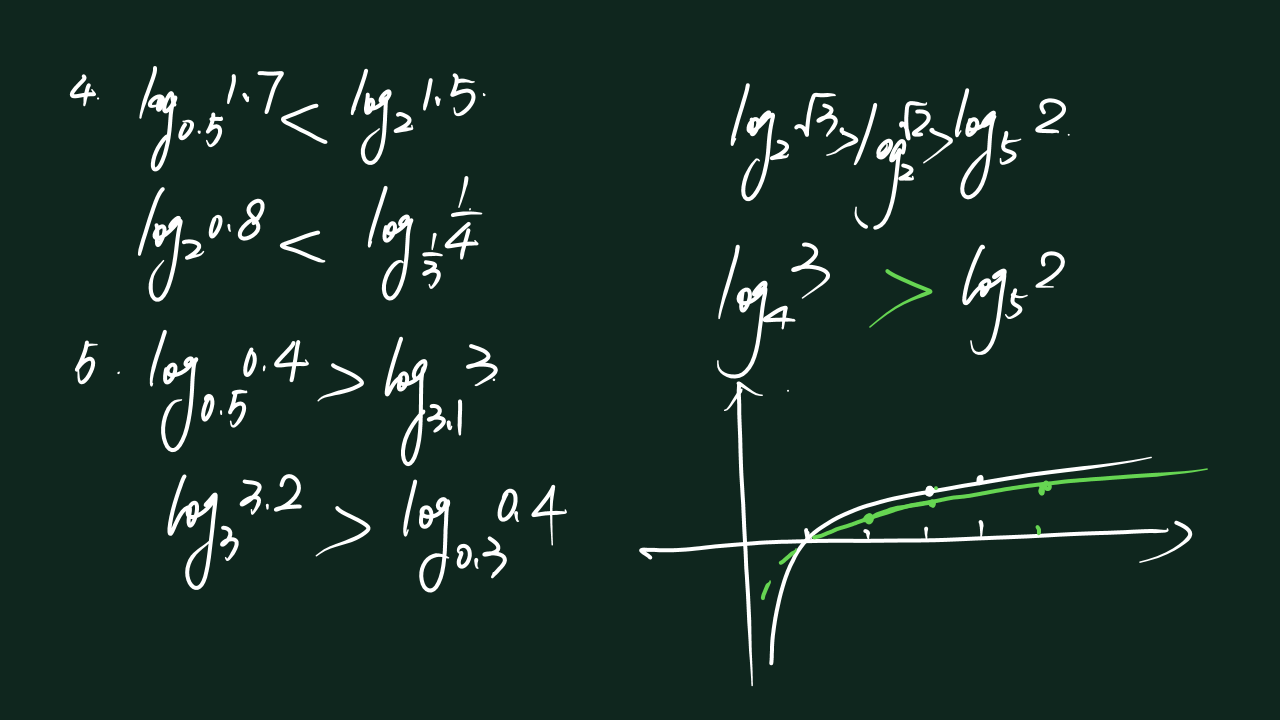 4. log_{0.5} 1.7 < log_2 1.5
log_2 0.8 < log_{1/3} 1/4
5. log_{0.5} 0.4 > log_{3.1} 3
log_3 3.2 > log_{0.3} 0.4
log_2 √3 > log_2 √2 > log_5 2
log_4 3 > log_5 2